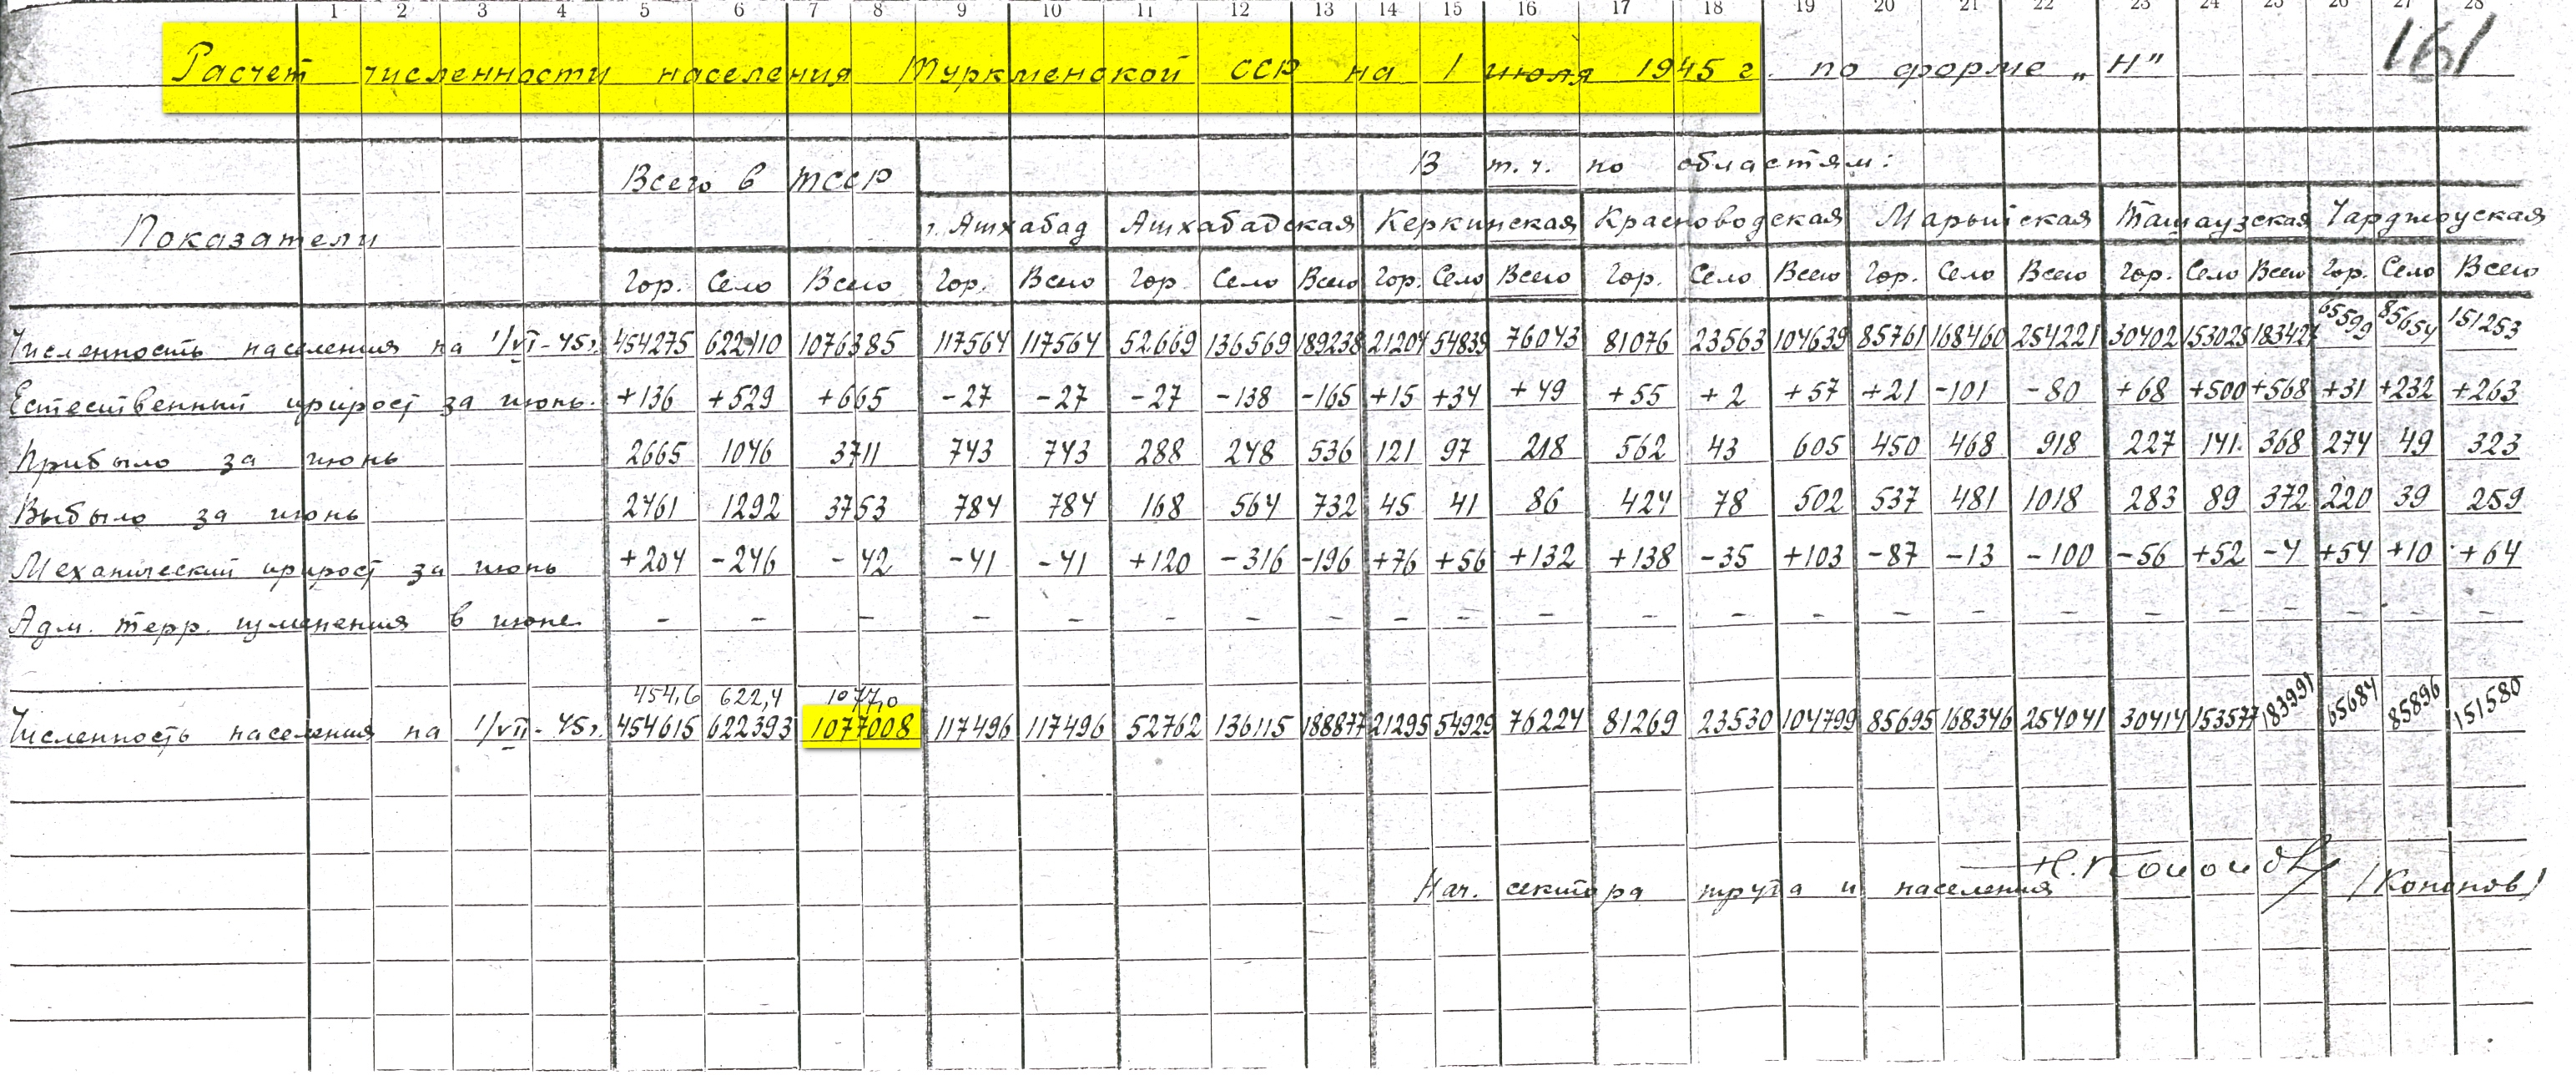 1 2 3 4 5 6 7 8 9 10 11 12 13 14 15 16 17 18 19 20 21 22 23 24 25 26 27 28
161
Расчет численности населения Туркменской ССР на 1 июля 1945 г. по форме „Н"
Всего в ТССР В т.ч. по областям:
Показатели г. Ашхабад Ашхабадская Керкинская Красноводская Марыйская Ташаузская Чарджоуская
Гор. Село Всего Гор. Всего Гор. Село Всего Гор. Село Всего Гор. Село Всего Гор. Село Всего Гор. Село Всего Гор. Село Всего
Численность населения на 1/VI-45г. 454275 622110 1076385 117564 117564 52669 136569 189238 21204 54839 76043 81076 23563 104639 85761 168460 254221 30402 153025 183427 65599 85654 151253
Естественный прирост за июнь. +136 +529 +665 -27 -27 -27 -138 -165 +15 +34 +49 +55 +2 +57 +21 -101 -80 +68 +500 +568 +31 +232 +263
Прибыло за июнь 2665 1046 3711 743 743 288 248 536 121 97 218 562 43 605 450 468 918 227 141 368 274 49 323
Выбыло за июнь 2461 1292 3753 784 784 168 564 732 45 41 86 424 78 502 537 481 1018 283 89 372 220 39 259
Механический прирост за июнь +204 -246 -42 -41 -41 +120 -316 -196 +76 +56 +132 +138 -35 +103 -87 -13 -100 -56 +52 -4 +54 +10 +64
Адм. терр. изменения в июне - - - - - - - - - - - - - - - - - - - - - - -
454,6 622,4 1077,0
Численность населения на 1/VII-45г. 454615 622393 1077008 117496 117496 52762 136115 188877 21295 54929 76224 81269 23530 104799 85695 168346 254041 30414 153577 183991 65684 85896 151580
Нач. сектора труда и населения Н.Кононов /Кононов/